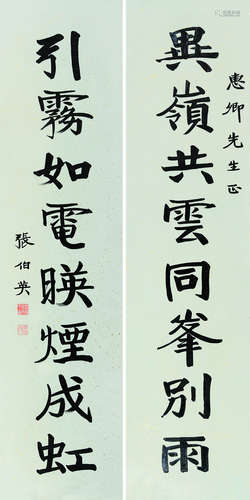 惠卿先生正
異嶺共雲同峯別雨
引霧如電暎煙成虹
張伯英